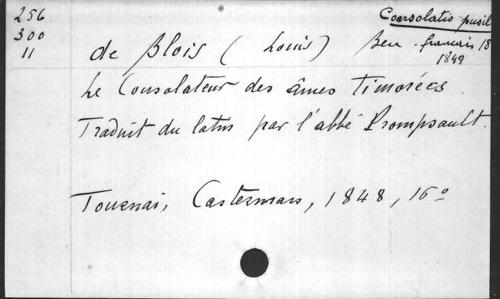 256
300
11
Consolatio pusil
de Blois (Louis) Ben. francais 18
1849
Le Consolateur des âmes timorées.
Traduit du latin par l'abbé Prompsault.
Tournai, Casterman, 1848, 16°